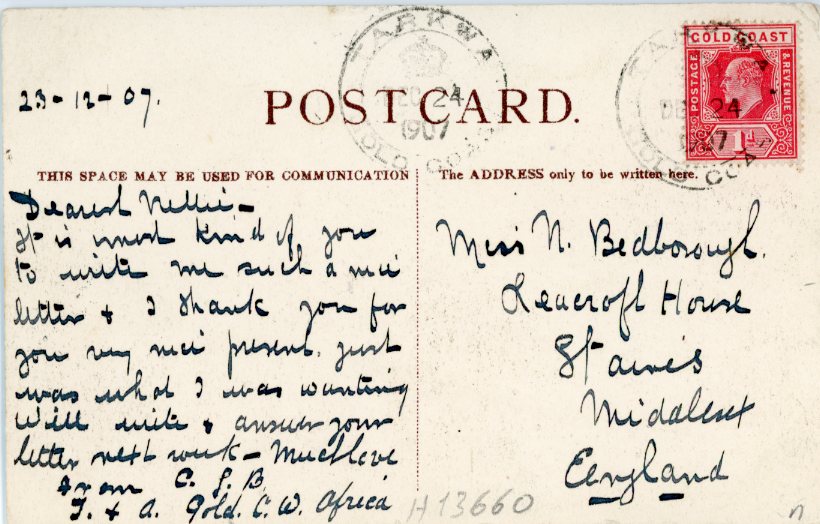 23-12-07.
POST CARD.
TARKWA
DEC 24
1907
GOLD COAST
TARKWA
DE 24
1907
GOLD COAST
GOLD COAST
POSTAGE
& REVENUE
1d
THIS SPACE MAY BE USED FOR COMMUNICATION
The ADDRESS only to be written here.
Dearest Nellie-
It is most kind of you
to write me such a nice
letter & I thank you for
you very nice present. just
was what I was wanting
Will write & answer your
letter next week - Much love
from C. J. B.
T. & A. Gold. C. W. Africa
Miss N. Bedborough.
Leacroft House
Staines
Middlesex
England
H13660
n